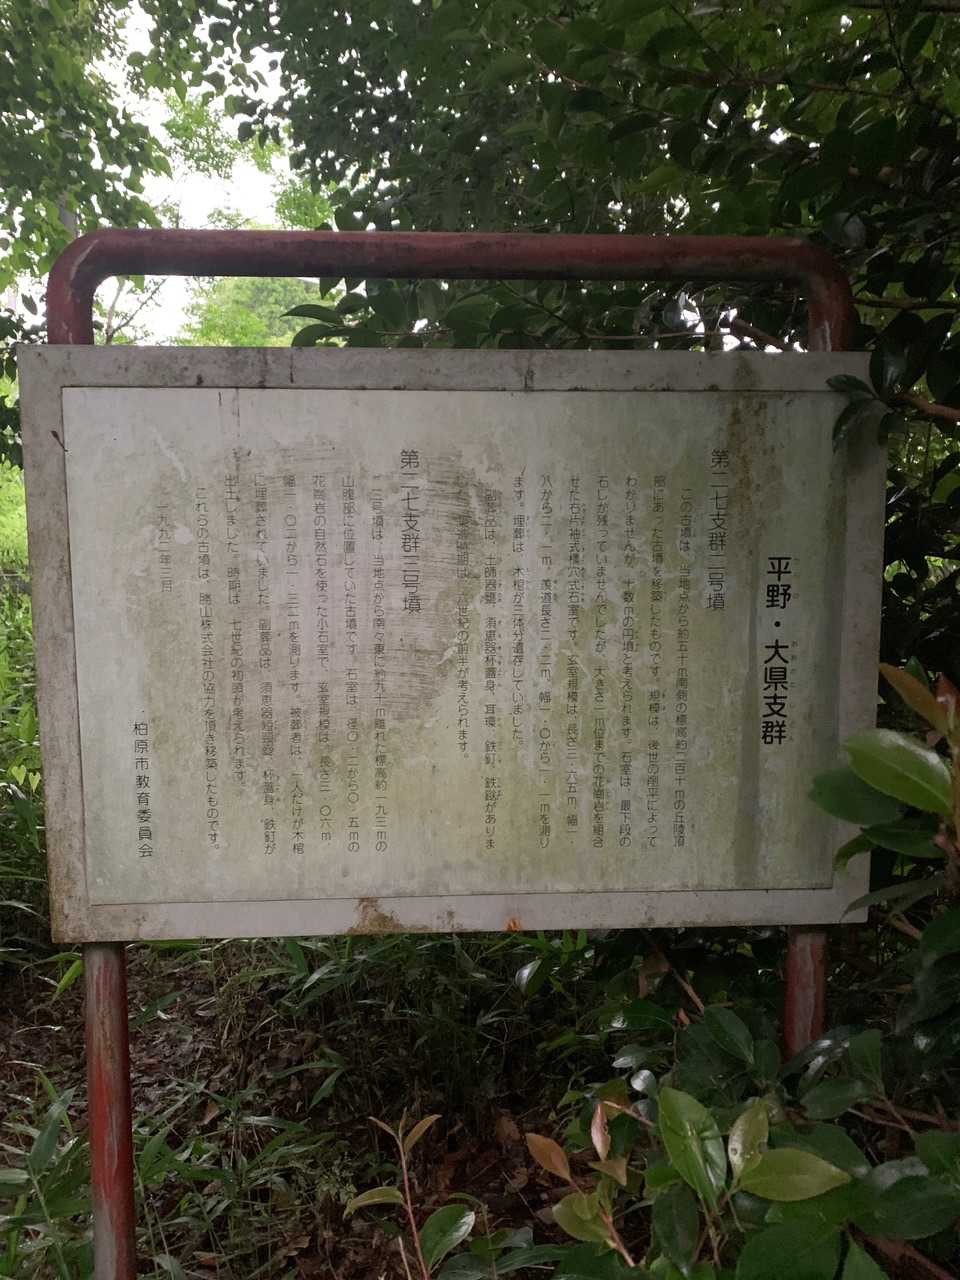 平野・大県支群
第二七支群二号墳
この古墳は、当地点から約五十m南側の標高約二百十mの丘陵頂
部にあった古墳を移築したものです。規模は、後世の削平によって
わかりませんが、十数mの円墳と考えられます。石室は、最下段の
石しか残っていませんでしたが、大きさ一m位までの花崗岩を組合
せた右片袖式横穴式石室です。玄室規模は、長さ三・六五m、幅一・
八から二・一m、羨道長さ二・二m、幅一・〇から一・一mを測り
ます。埋葬は、木棺が三体分遺存していました。
副葬品は、土師器甕、須恵器杯蓋身、耳環、鉄釘、鉄鏃がありま
築造時期は、六世紀の前半が考えられます。
第二七支群三号墳
三号墳は、当地点から南々東に約九一m離れた標高約一九三mの
山腹部に位置していた古墳です。石室は、径〇・二から〇・五mの
花崗岩の自然石を使った小石室で、玄室規模は、長さ三・〇六m、
幅一・〇二から一・三二mを測ります。被葬者は、一人だけが木棺
に埋葬されていました。副葬品は、須恵器短頸壺、杯蓋身、鉄釘が
出土しました。時期は、七世紀の初頭が考えられます。
これらの古墳は、勝山株式会社の協力を頂き移築したものです。
一九九二年三月
柏原市教育委員会